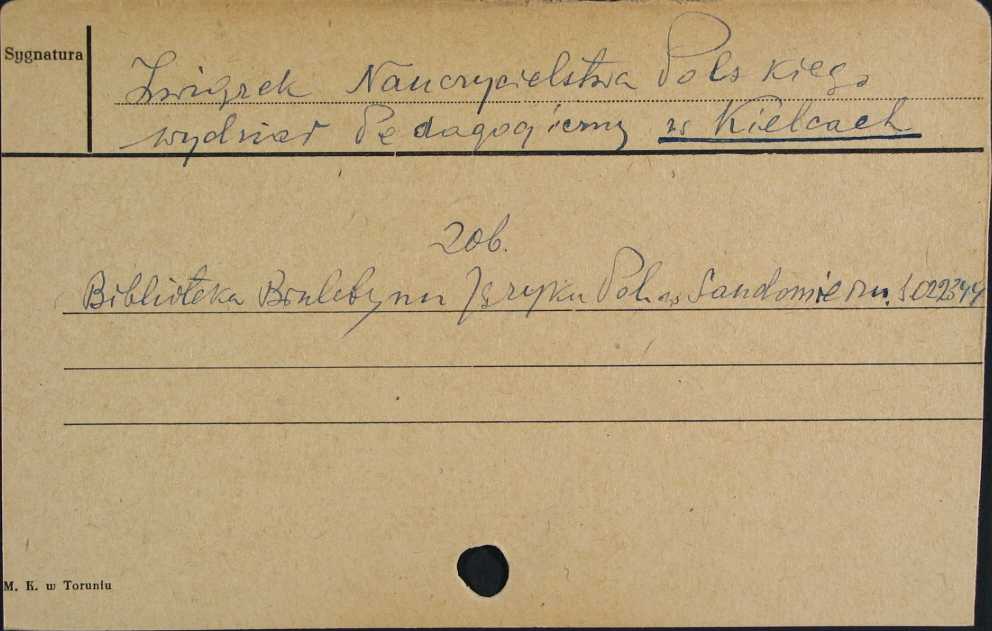 Sygnatura
Związek Nauczycielstwa Polskiego
wydział Pedagogiczny w Kielcach
zob.
Biblioteka Biuletynu Języku Pol. w Sandomierzu.
M. K. w Toruniu